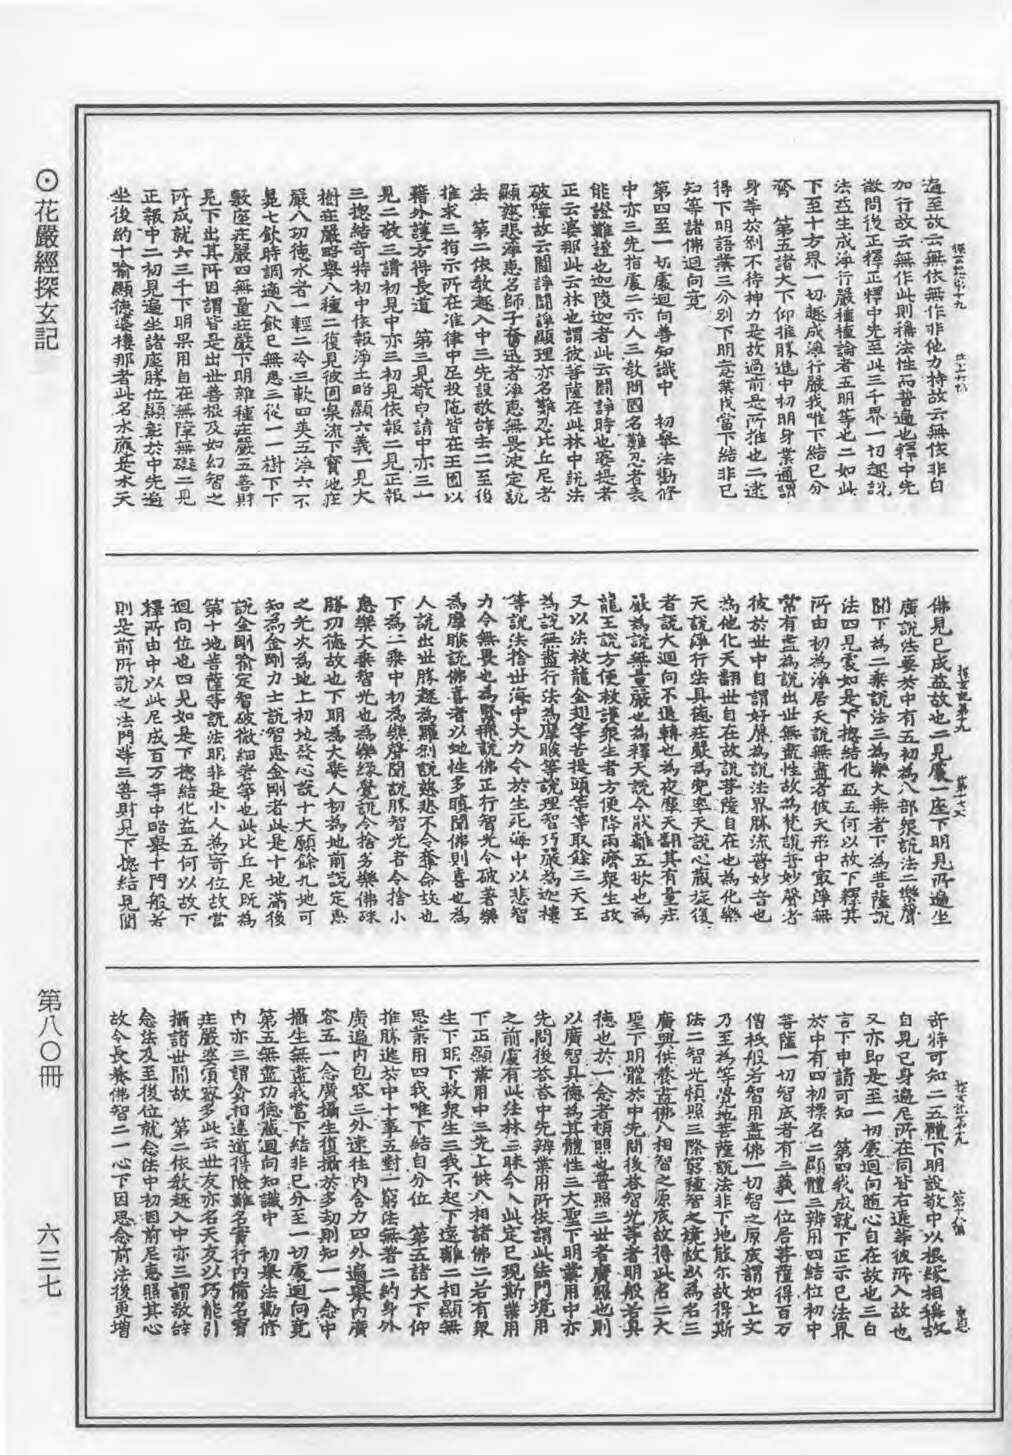 過至故云無依無作非他力持故云無依非自
加行故云無作此則稱法性而普遍也釋中先
徵問後正釋正釋中先至此三千界一切趣說
法益生成淨行嚴種種論者五明等也二如此
下至十方界一切趣成淨行嚴我唯下結已分
齊　第五諸大下仰推勝進中初明身業通謂
身等於剎不待神力是故過前是所推也二逮
得下明語業三分別下明意業我當下結非已
知等諸佛迴向竟
第四至一切處迴向善知識中　初舉法勸修
中亦三先指處二示人三敎問國名難忍者表
能證難證也迦陵迦者此云鬪諍時也婆提者
正云婆那此云林也謂彼菩薩在此林中說法
破障故云鬪諍鬪諍顯理亦名難忍比丘尼者
顯慈悲淨惠名師子奮迅者淨惠無畏決定說
法　第二依敎趣入中三先設敬辞去二至後
推求三指示所在准律中尼投陁皆在王國以
藉外護方得長道　第三見敬白請中亦三一
見二敬三請初見中亦三初見依報二見正報
三摠結奇特初中依報淨土略顯六義一見大
樹莊嚴略舉八種二復見彼園泉流下寶地莊
嚴八功德水者一輕二冷三軟四美五淨六不
臭七飲時調適八飲已無患三從一一樹下下
敷座莊嚴四無量莊嚴下明雜種莊嚴五善財
見下出其所因謂皆是出世善根及如幻智之
所成就六三千下明果用自在無障無礙二見
正報中二初見遍坐諸座勝位顯彰於中先遍
坐後約十喻顯德婆樓那者此名水應是水天
佛見已成益故也二見處一座下明見所遍坐
廣說法要於中有五初為八部衆說法二樂聲
聞下為二乘說法三為樂大乘者下為菩薩說
法四見衆如是下摠結化益五何以故下釋其
所由初為淨居天說無盡者彼天形中寂靜無
常有盡為說出世無盡性故為梵說普妙聲者
彼於世中自謂好聲為說法界勝流普妙音也
為他化天翻世自在故說菩薩自在也為化樂
天說淨行法具德莊嚴為兜率天說心藏旋復
者說大迴向不退轉也為夜摩天翻其有量莊
嚴為說無量嚴也為釋天說令猒離五欲也為
龍王說方便救護衆生者方便降雨濟衆生故
又以法救龍金翅等苦提頭等等取餘三天王
為說無盡行法為摩睺等說理智巧嚴為迦樓
等說法捨世海中大力令於生死海中以悲智
力令無畏也為緊稱說佛正行智光令破著樂
為摩睺說佛喜者以地性多瞋聞佛則喜也為
人說出世勝趣為羅剎說慈悲不令奪命故也
下為二乘中初為樂聲聞說勝智光者令捨小
惠樂大乘智光也為樂緣覺說令捨劣樂佛殊
勝功德故也下明為大乘人初為地前說定惠
之光次為地上初地發心說十大願餘九地可
知為金剛力士說智惠金剛者此是十地滿後
說金剛喻定智破微細業等也此比丘尼旣為
第十地菩薩等說法明非是小人為寄位故當
迴向位也四見如是下摠結化益五何以故下
釋所由中以此尼成百万等中略舉十門般若
則是前所說之法門等三善財見下摠結見聞
奇特可知二五體下明設敬中以根緣相稱故
自見已身遍尼所在同登右遶等彼所入故也
又亦即是至一切處迴向隨心自在故也三白
言下申請可知　第四我成就下正示已法界
於中有四初標名二顯體三辨用四結位初中
菩薩一切智底者有二義一位居菩薩得百万
僧祇般若智用盡佛一切智之原底謂如上文
乃至為等覺地菩薩說法非下地能尒故得斯
法二智光頓照三際窮種智之境故以為名三
廣興供養盡佛八相智之原底故得此名二大
聖下明體於中先問後答智光等者明般若具
德也於一念者頓照也普照三世者廣照也則
以廣智具德為其體性三大聖下明業用中亦
先問後答答中先辨業用所依謂此法門境用
之前處有此法林三昧今入此定已現斯業用
下正顯業用中三先上供八相諸佛二若有衆
生下明下敎衆生三我不起下遠離二相顯無
思業用四我唯下結自分位　第五諸大下仰
推勝進於中十事五對一窮法無著二約身外
廣遍內包容三外速往內含力四外遍舉內廣
容五一念廣攝生復攝於多劫則知一一念中
攝生無盡我當下結非已分至一切處迴向竟
第五無盡功德藏迴向知識中　初舉法勸修
內亦三謂會相違道得險難名實行內備名寶
莊嚴婆須蜜多此云世友亦名天友以巧能引
攝諸世間故　第二依敎趣入中亦三謂敬辞
念法及至後位就念法中初因前尼惠照其心
故令長養佛智二一心下因思念前法後更增
⊙花嚴經探玄記
第八〇冊
六三七